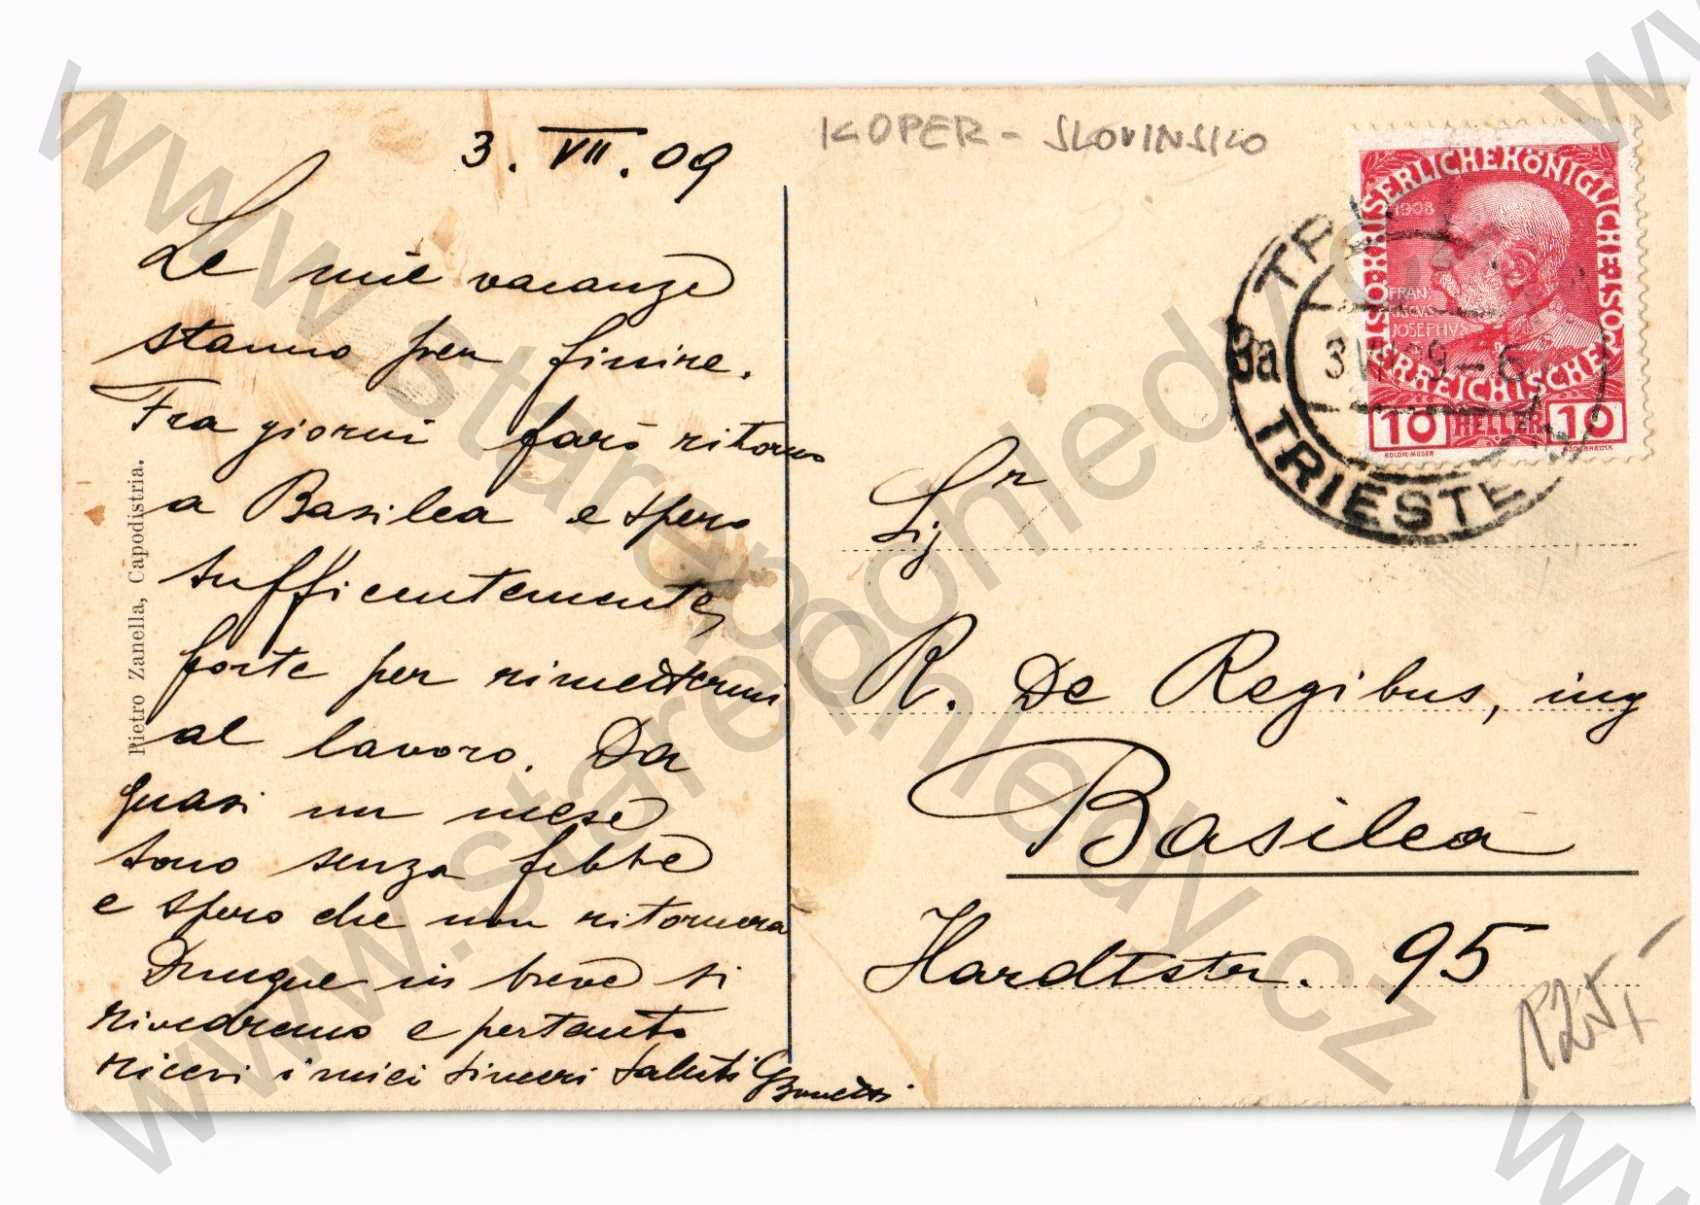 3. VII. 09
KOPER - SLOVINSKO
Le mie vacanze
stanno per finire.
Fra giorni farò ritorno
a Basilea e spero
sufficientemente
forte per rimettermi
al lavoro. Da
quasi un mese
sono senza febbre
e spero che non ritornerà
Dunque in breve si
rivedremo e pertanto
ricevi i miei sinceri saluti
Pietro Zanella, Capodistria.
KAISERLICHE KÖNIGLICHE ÖSTERREICHISCHE
1908
FRAN
JOSEPHVS
10 HELLER 10
3a TRIESTE
Sigr
R. De Regibus, ing
Basilea
Hardtstr. 95
125,-
www.starepohledy.cz
www.starepohledy.cz